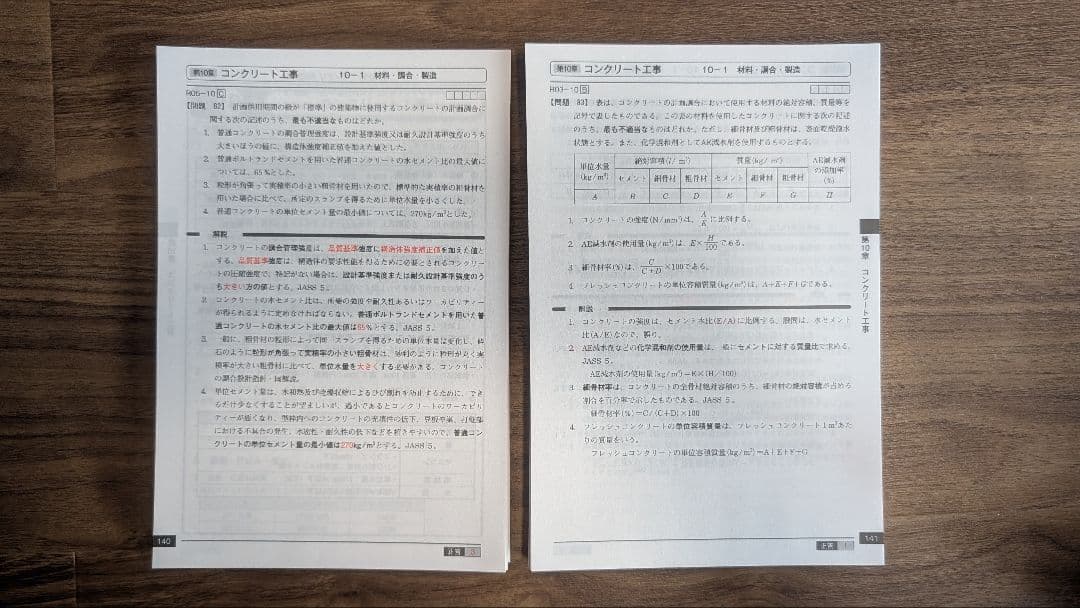 第10章 コンクリート工事 10-1 材料・調合・製造
R05-10 C
【問題 82】 計画供用期間の級が「標準」の建築物に使用するコンクリートの計画調合に
関する次の記述のうち、最も不適当なものはどれか。
1. 普通コンクリートの調合管理強度は、設計基準強度又は耐久設計基準強度のうち
大きいほうの値に、構造体強度補正値を加えた値とした。
2. 普通ポルトランドセメントを用いた普通コンクリートの水セメント比の最大値に
ついては、65％とした。
3. 粒形が角張って実積率の小さい粗骨材を用いたので、標準的な実積率の粗骨材を
用いた場合に比べて、所定のスランプを得るために単位水量を小さくした。
4. 普通コンクリートの単位セメント量の最小値については、270kg/m³とした。
解説
1. コンクリートの調合管理強度は、品質基準強度に構造体強度補正値を加えた値と
する。品質基準強度は、構造体の要求性能を得るために必要とされるコンクリー
トの圧縮強度で、特記がない場合は、設計基準強度または耐久設計基準強度のう
ち大きい方の値とする。JASS 5。
2. コンクリートの水セメント比は、所要の強度や耐久性あるいはワーカビリティー
が得られるように定めなければならない。普通ポルトランドセメントを用いた普
通コンクリートの水セメント比の最大値は65％とする。JASS 5。
3. 一般に、粗骨材の粒形によって同一スランプを得るための単位水量は変化し、砕
石のように粒形が角張って実積率の小さい粗骨材は、砂利のように粒形が丸く実
積率が大きい粗骨材に比べて、単位水量を大きくする必要がある。コンクリート
の調合設計指針・同解説。
4. 単位セメント量は、水和熱及び乾燥収縮によるひび割れを防止するために、でき
るだけ少なくすることが望ましいが、過小であるとコンクリートのワーカビリ
ティーが悪くなり、型枠内へのコンクリートの充填性の低下、豆板や巣、打継部
における不具合の発生、水密性・耐久性の低下などを招きやすいので、普通コン
クリートの単位セメント量の最小値は270kg/m³とする。JASS 5。
140
正答 3
第10章 コンクリート工事 10-1 材料・調合・製造
R03-10 B
【問題 83】 表は、コンクリートの計画調合において使用する材料の絶対容積、質量等を
記号で表したものである。この表の材料を使用したコンクリートに関する次の記述
のうち、最も不適当なものはどれか。ただし、細骨材及び粗骨材は、表面乾燥飽水
状態とする。また、化学混和剤としてAE減水剤を使用するものとする。
単位水量 (kg/m³) 絶対容積(ℓ/m³) 質量(kg/m³) AE減水剤の添加率(%)
セメント 細骨材 粗骨材 セメント 細骨材 粗骨材
A B C D E F G H
1. コンクリートの強度(N/mm²)は、A/E に比例する。
2. AE減水剤の使用量(kg/m³)は、E×H/100 である。
3. 細骨材率(%)は、C/(C+D)×100である。
4. フレッシュコンクリートの単位容積質量(kg/m³)は、A+E+F+Gである。
解説
1. コンクリートの強度は、セメント水比(E/A)に比例する。設問は、水セメント
比(A/E)なので、誤り。
2. AE減水剤などの化学混和剤の使用量は、一般にセメントに対する質量比で求める。
JASS 5。
AE減水剤の使用量(kg/m³)=E×(H/100)
3. 細骨材率は、コンクリートの全骨材絶対容積のうち、細骨材の絶対容積が占める
割合を百分率で示したものである。JASS 5。
細骨材率(%)=C/(C+D)×100
4. フレッシュコンクリートの単位容積質量は、フレッシュコンクリート1m³あた
りの質量をいう。
フレッシュコンクリートの単位容積質量(kg/m³)=A+E+F+G
第10章 コンクリート工事
正答 1
141